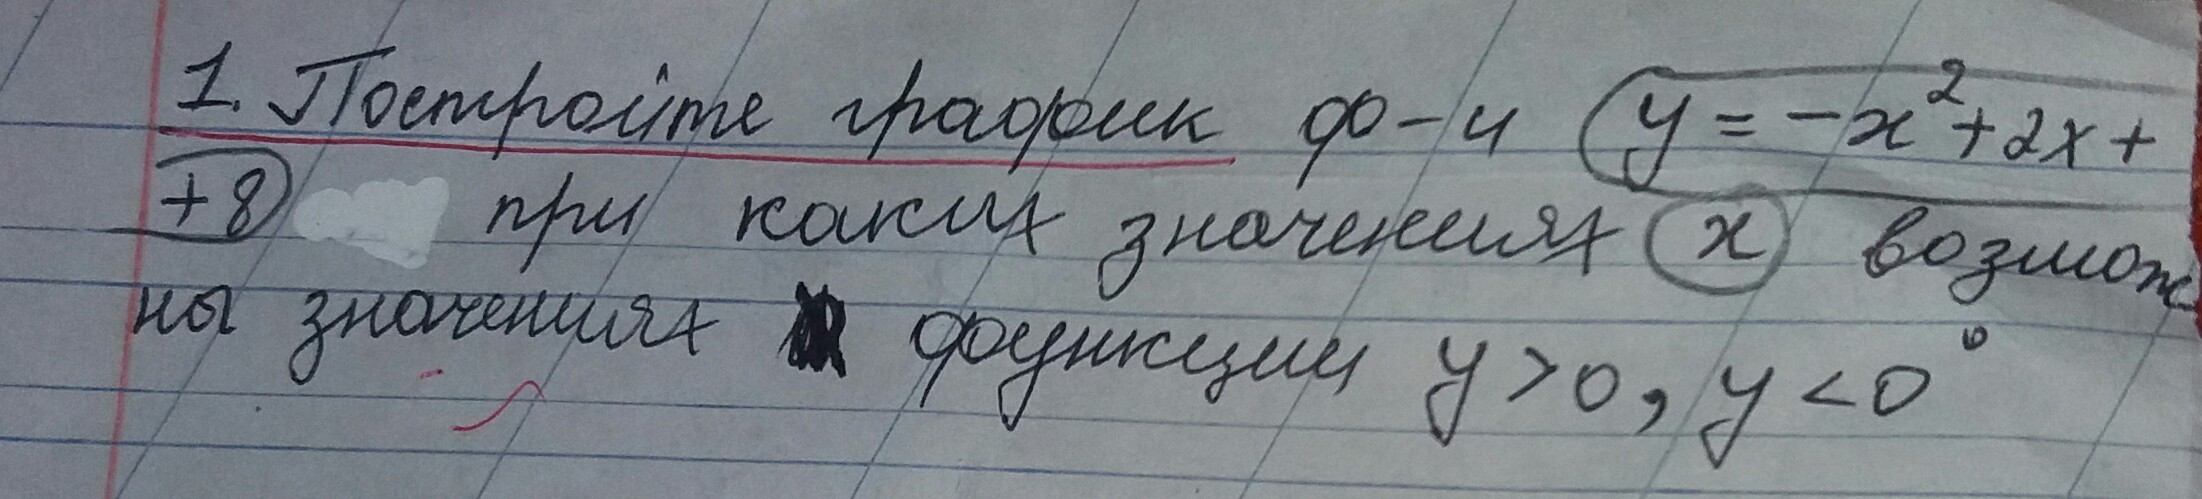 1. Постройте график ф-и y = -x² + 2x +
+8 при каких значениях x возмож
ны значениях функции y > 0, y < 0